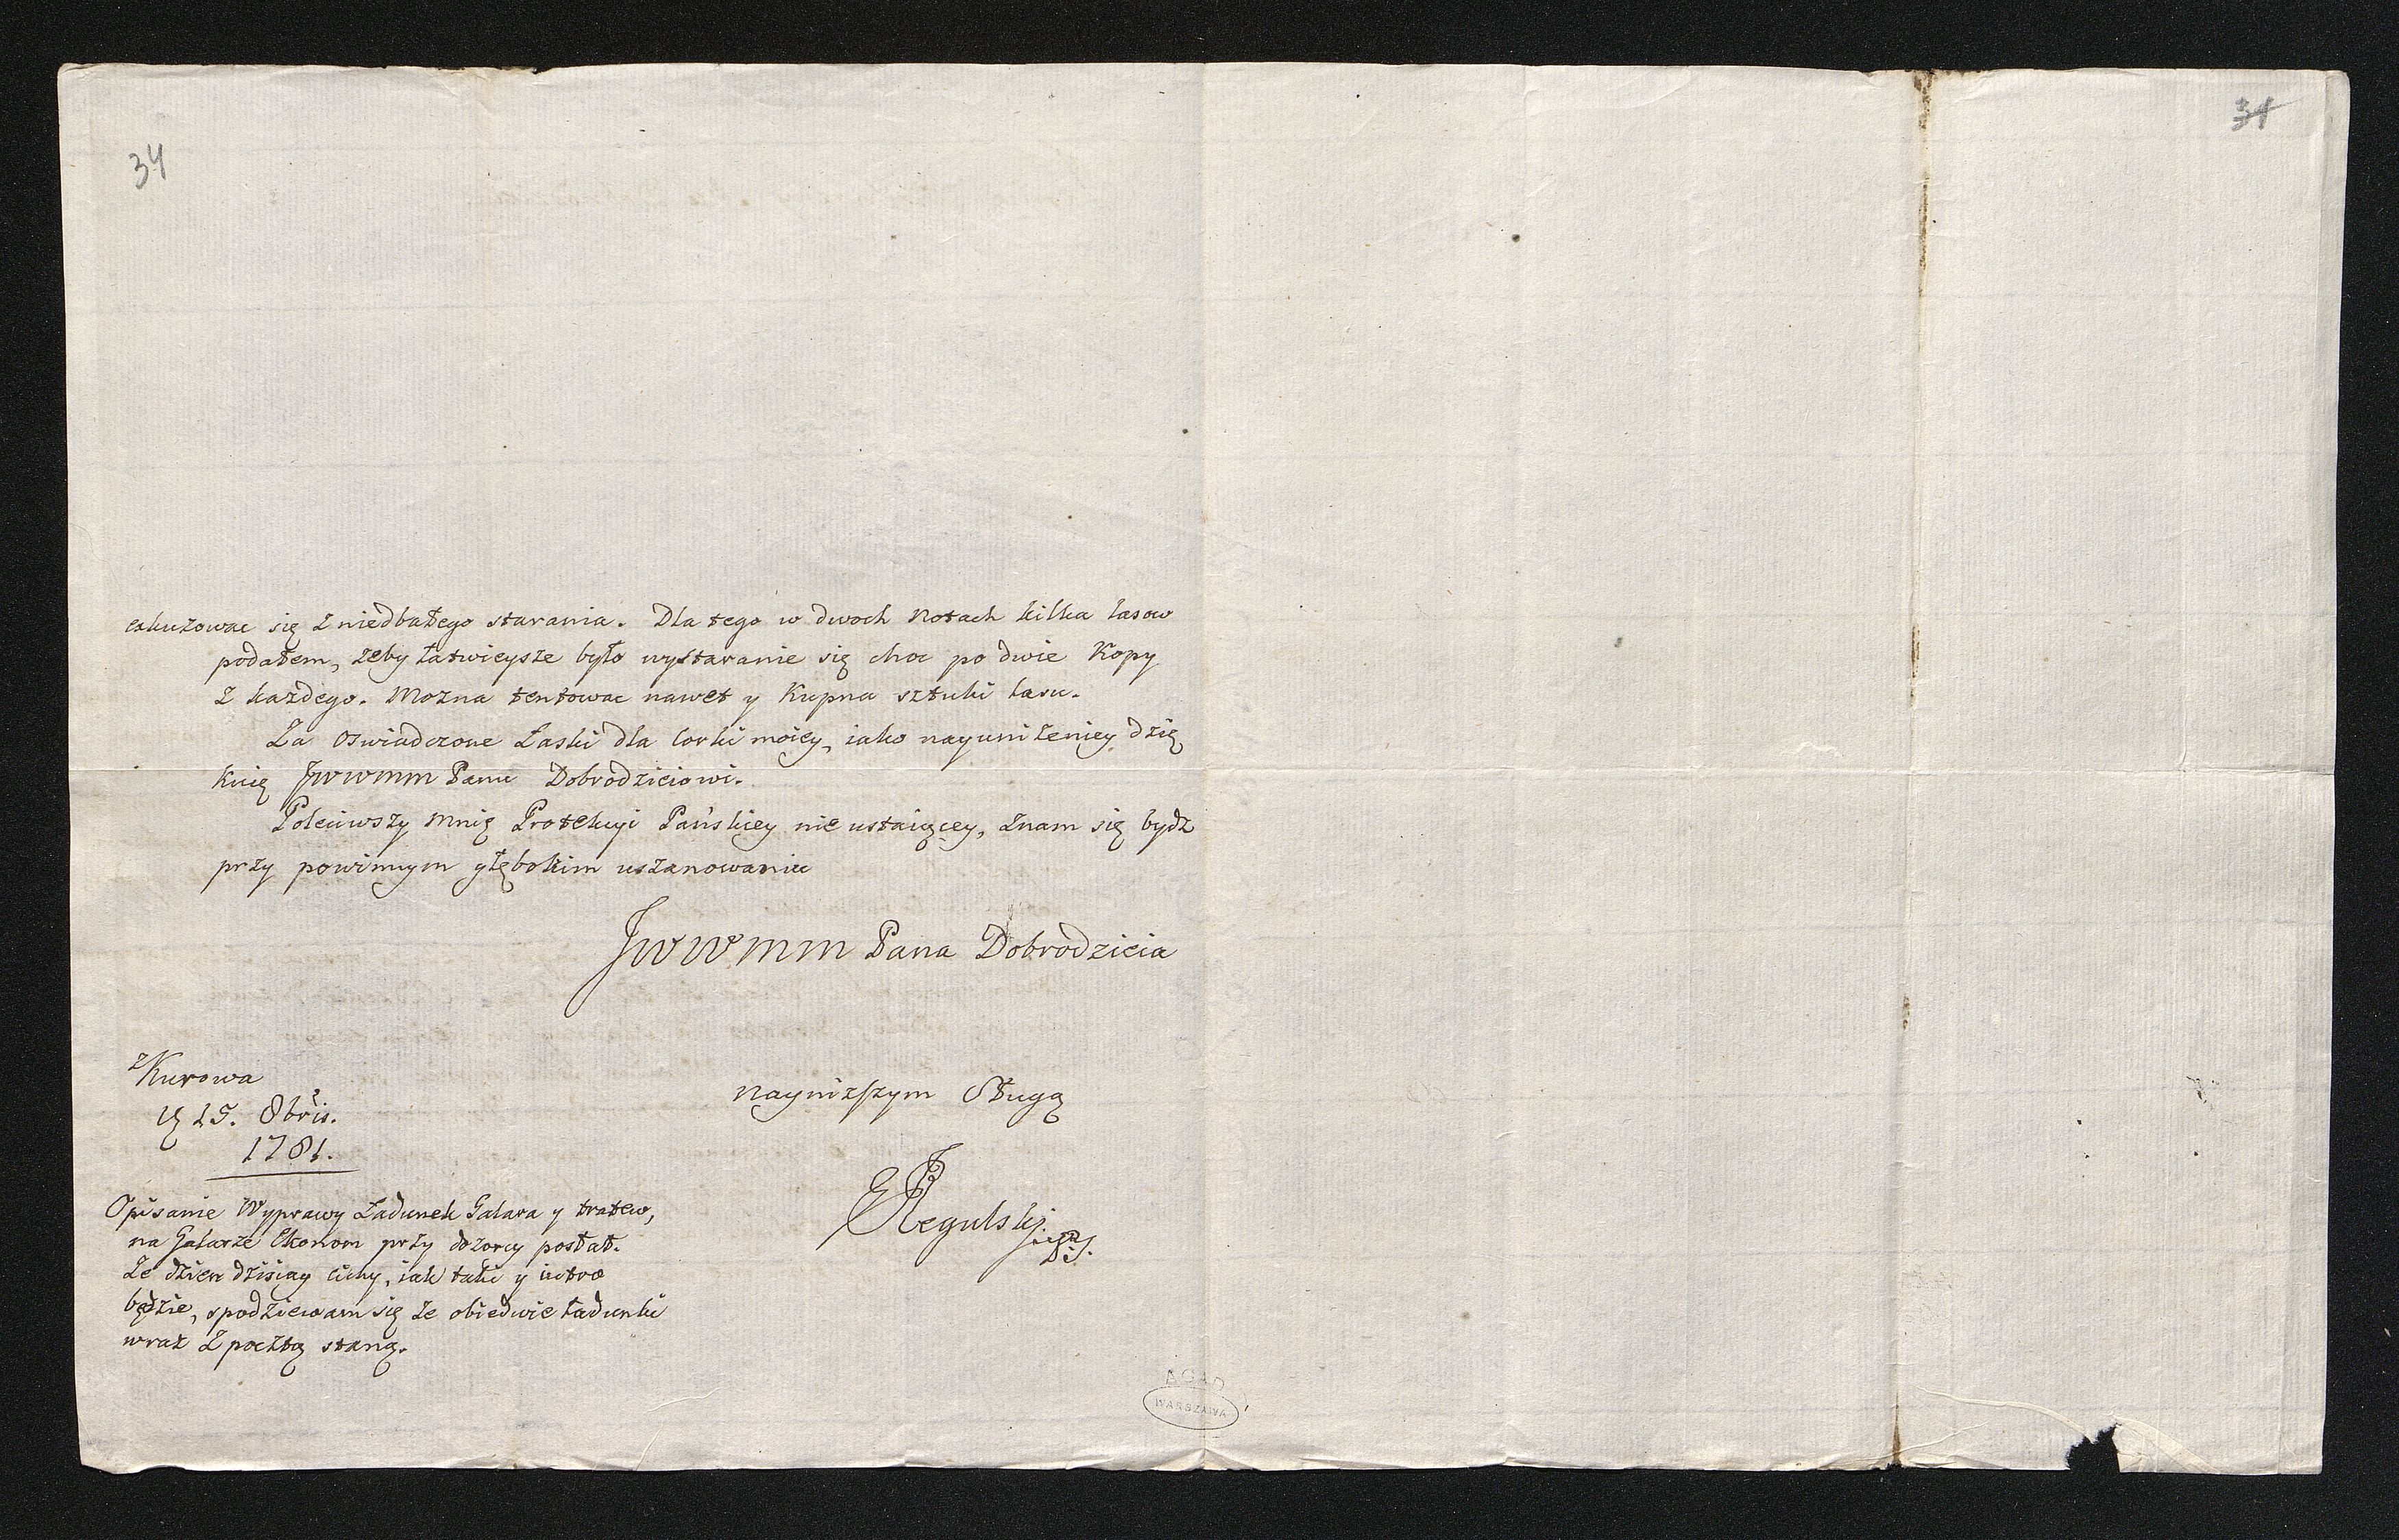 34
31
exkuzowac się z niedbałego starania. Dla tego w dwoch Notach kilka lasow
podałem, żeby łatwieysze było wystaranie się choc po dwie Kopy
z każdego. Mozna tentowac nawet y Kupna sztuki lasu.
Za oswiadczone Łaski dla Corki moiey, iako nayuniżeniey dzię
kuię JWWMM Panu Dobrodzieiowi.
Poleciwszy mnię Protekcyi Pańskiey nie ustaiącey, znam się bydz
przy powinnym głębokim uszanowaniu
JWWMM Pana Dobrodzieia
z Kurowa
15. 8bris.
1781.
nayniższym Sługą
Regulski
Opisanie Wyprawy Ładunek Galara y tratew,
na Galarze Ekonom przy dozorcy posłał.
Że dzien dzisiay cichy, iak taki y iutro
będzie, spodziewam się że obiedwie ładunki
wraz z pocztą staną.
AGAD
WARSZAWA